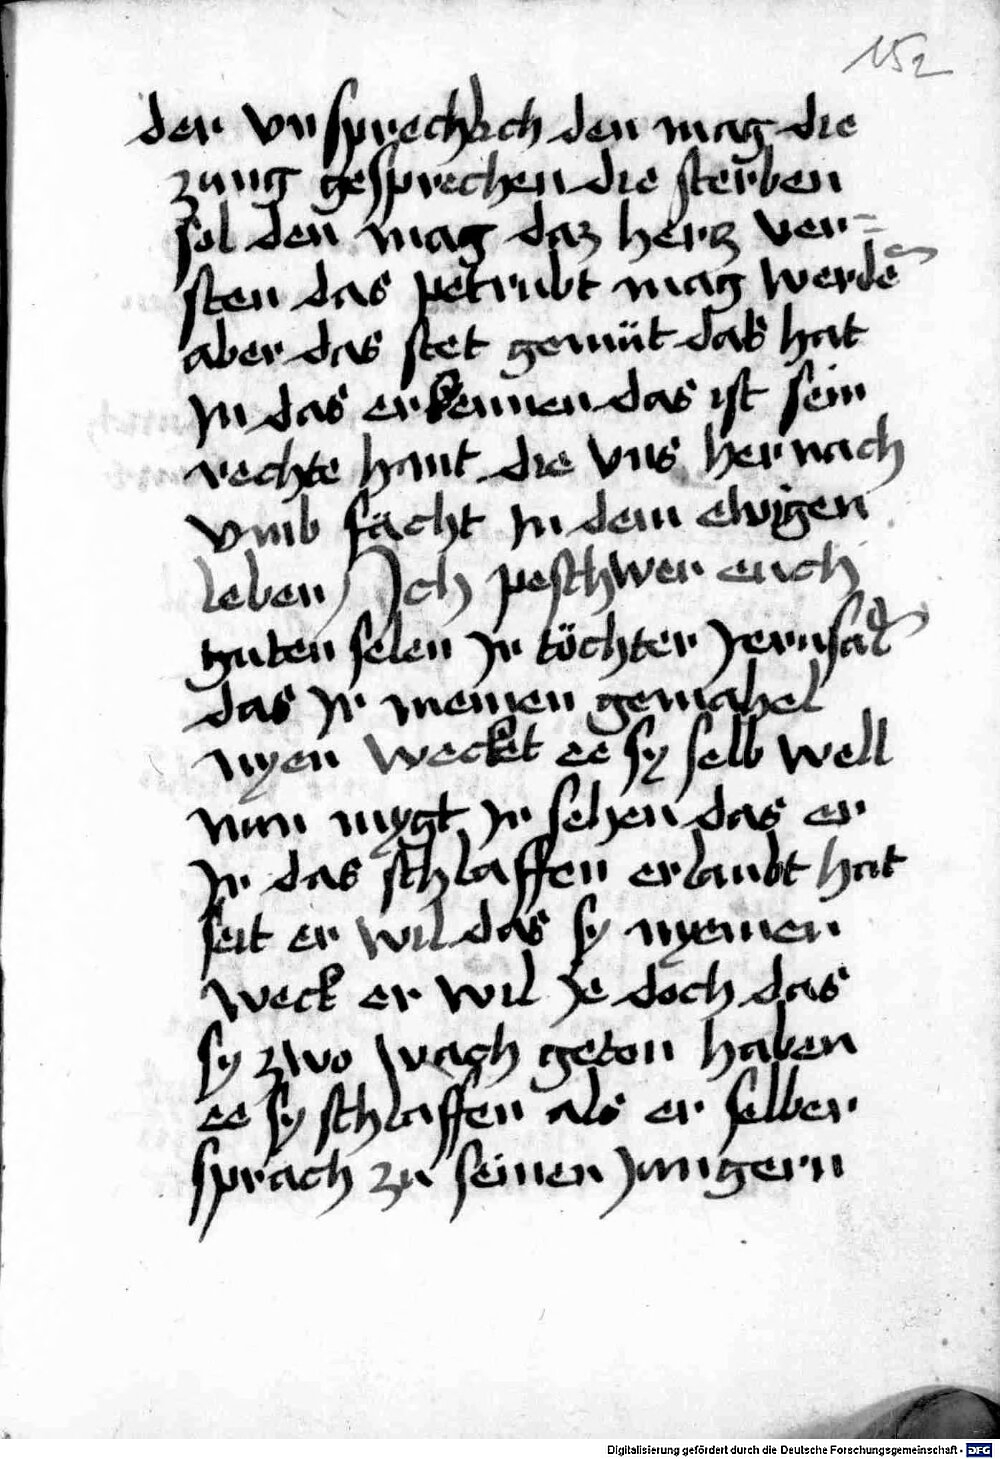 152
der vnsprechlich den mag die
zung gesprechen die sterben
sol den mag daz herz ver=
sten das petrubt mag werdē
aber das stet gemüt das hat
In das erkennen das ist sein
rechte hant die vns hernach
vmb fächt In dem ewigen
leben / Ich peschwer euch
guten selen Ir töchter Jerusal̄
das Ir meinen gemahel
nyen wecket ee sy selb well
nun mygt Ir sehen das er
Ir das schlaffen erlaubt hat
seit er wil das sy nyemen
weck er wil Je doch das
sy zwo wach geton haben
ee sy schlaffen als er selber
sprach zu seinen Jungern
Digitalisierung gefördert durch die Deutsche Forschungsgemeinschaft - DFG